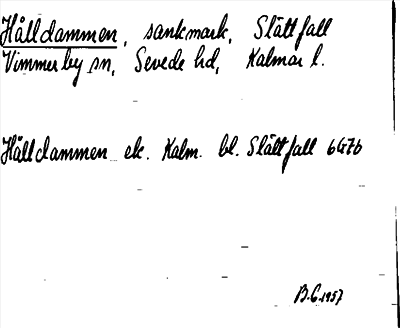 Hålldammen, sankmark, Slättfall
Vimmerby sn, Sevede hd, Kalmar l.
Hålldammen ek. Kalm. bl. Slättfall 6G7b
B.G. 1957